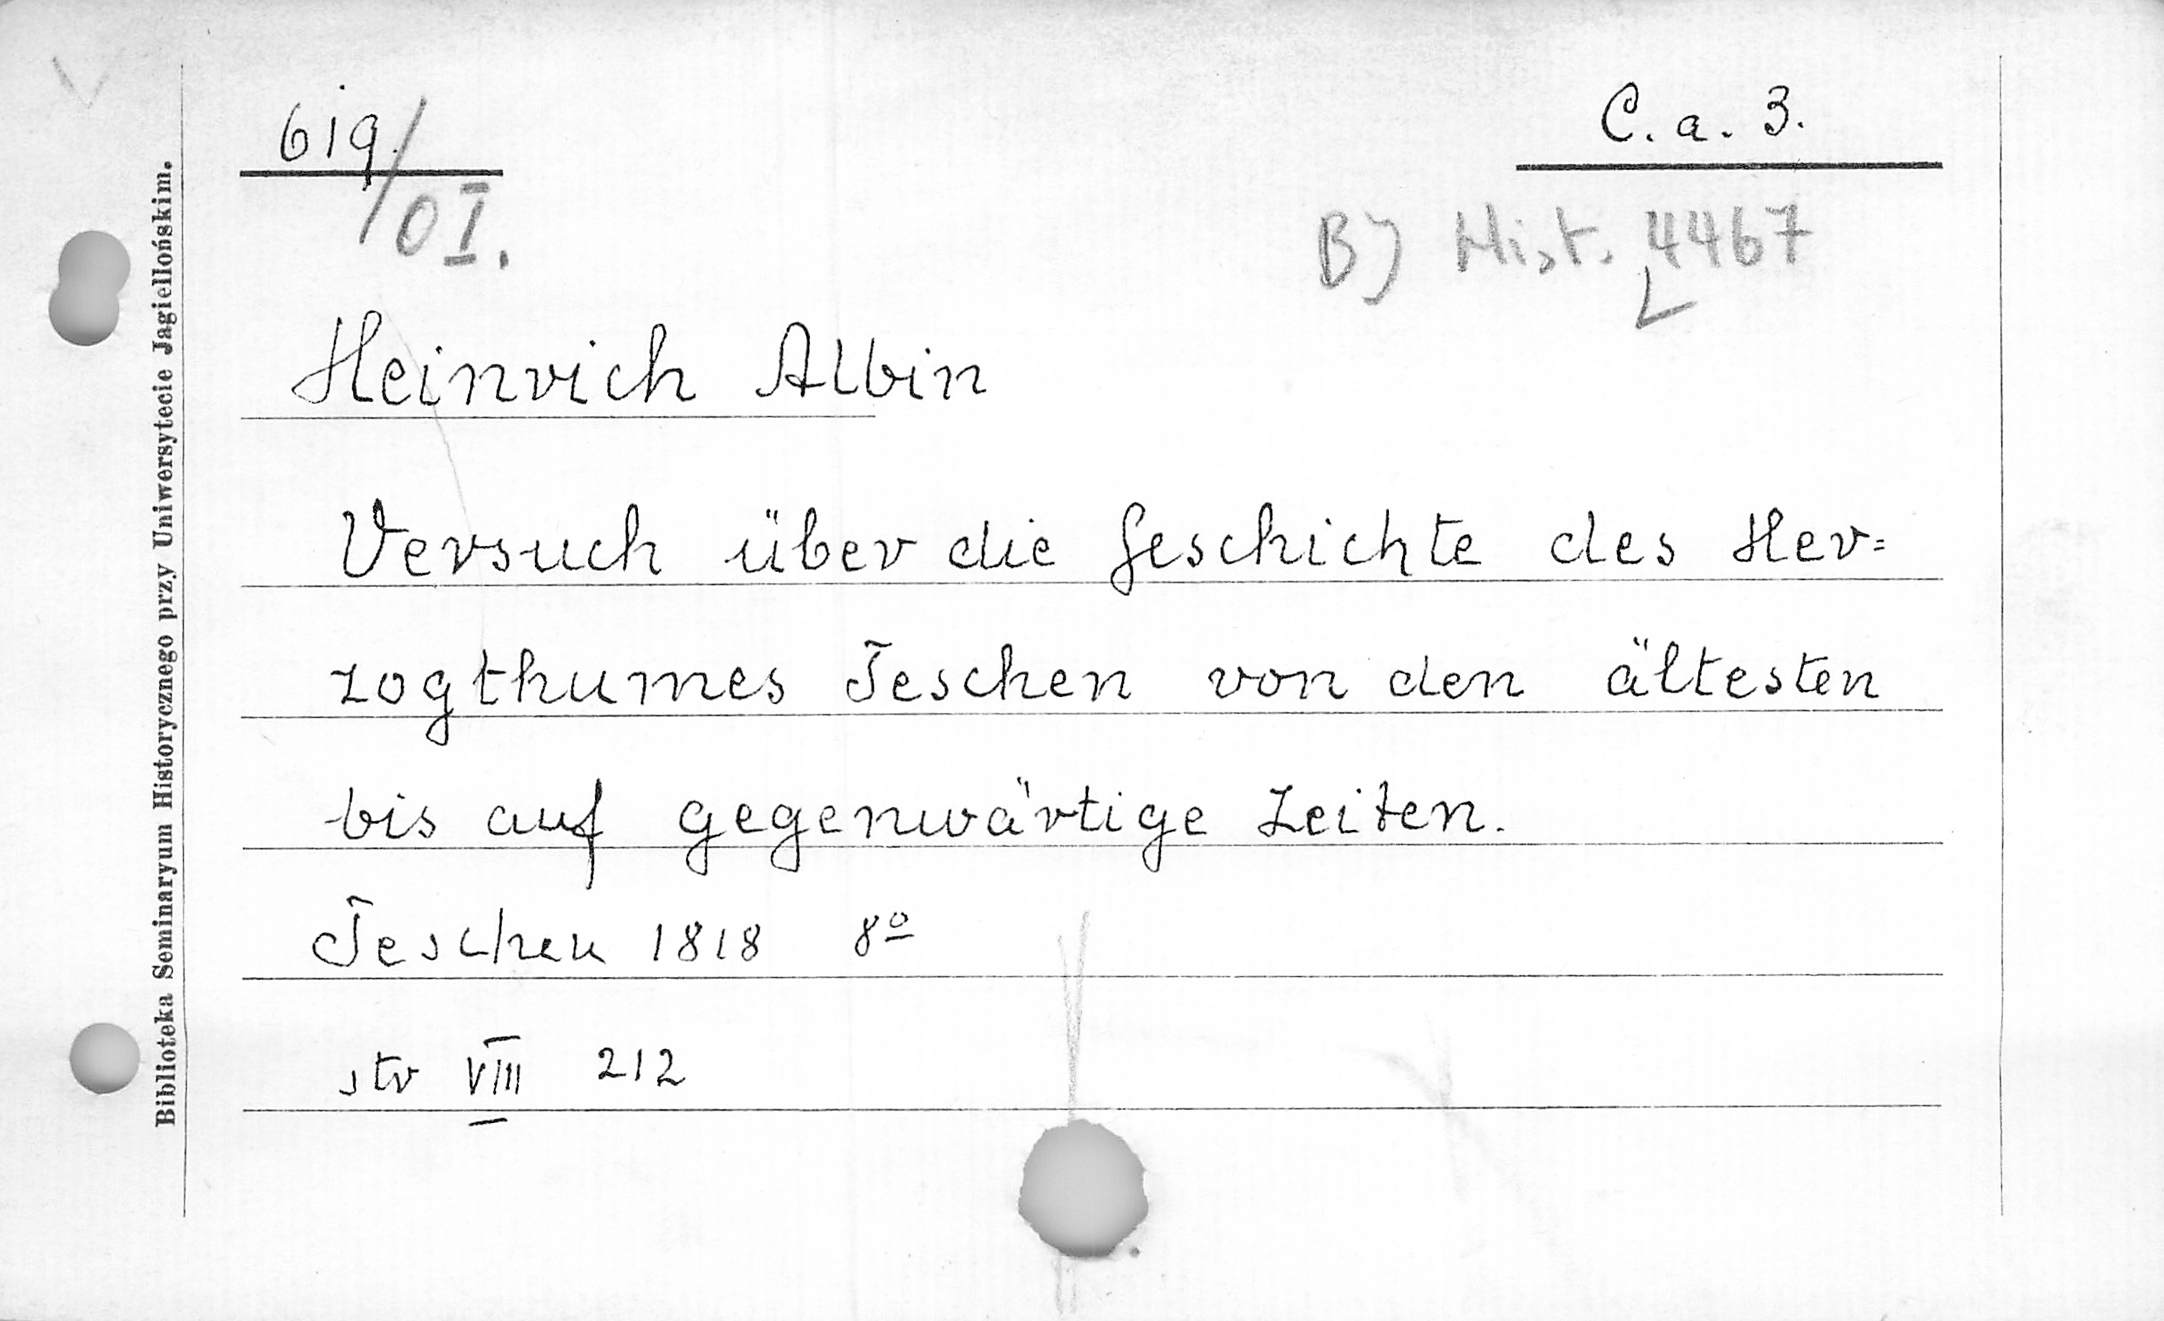 619.
/OI.
C. a. 3.
B) Hist. 4467
Heinrich Albin
Versuch über die Geschichte des Her=
zogthumes Teschen von den ältesten
bis auf gegenwärtige Zeiten.
Teschen 1818 8º
str VIII 212
Biblioteka Seminaryum Historycznego przy Uniwersytecie Jagiellońskim.